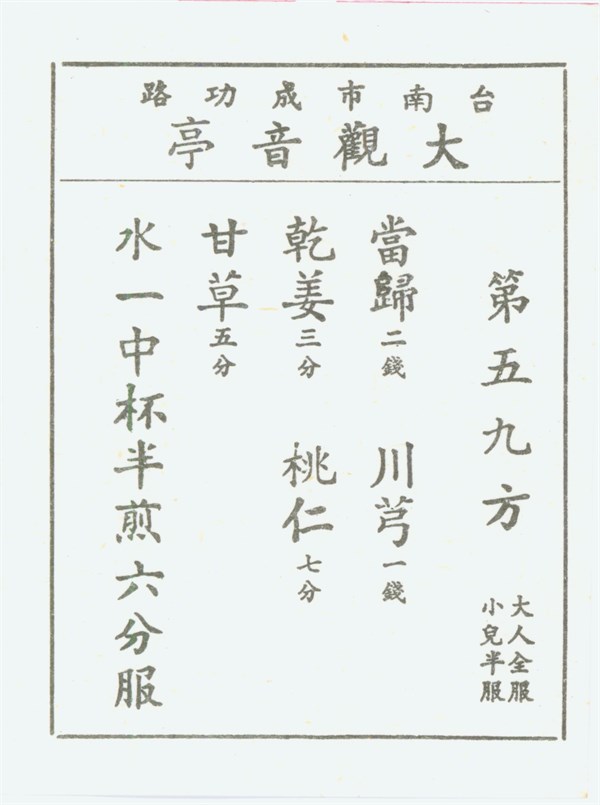 台南市成功路
大觀音亭
第五九方
大人全服
小兒半服
當歸二錢　川芎一錢
乾姜三分　桃仁七分
甘草五分
水一中杯半煎六分服